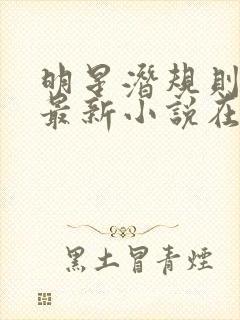 明星潛規則
最新小說在
黑土冒青煙